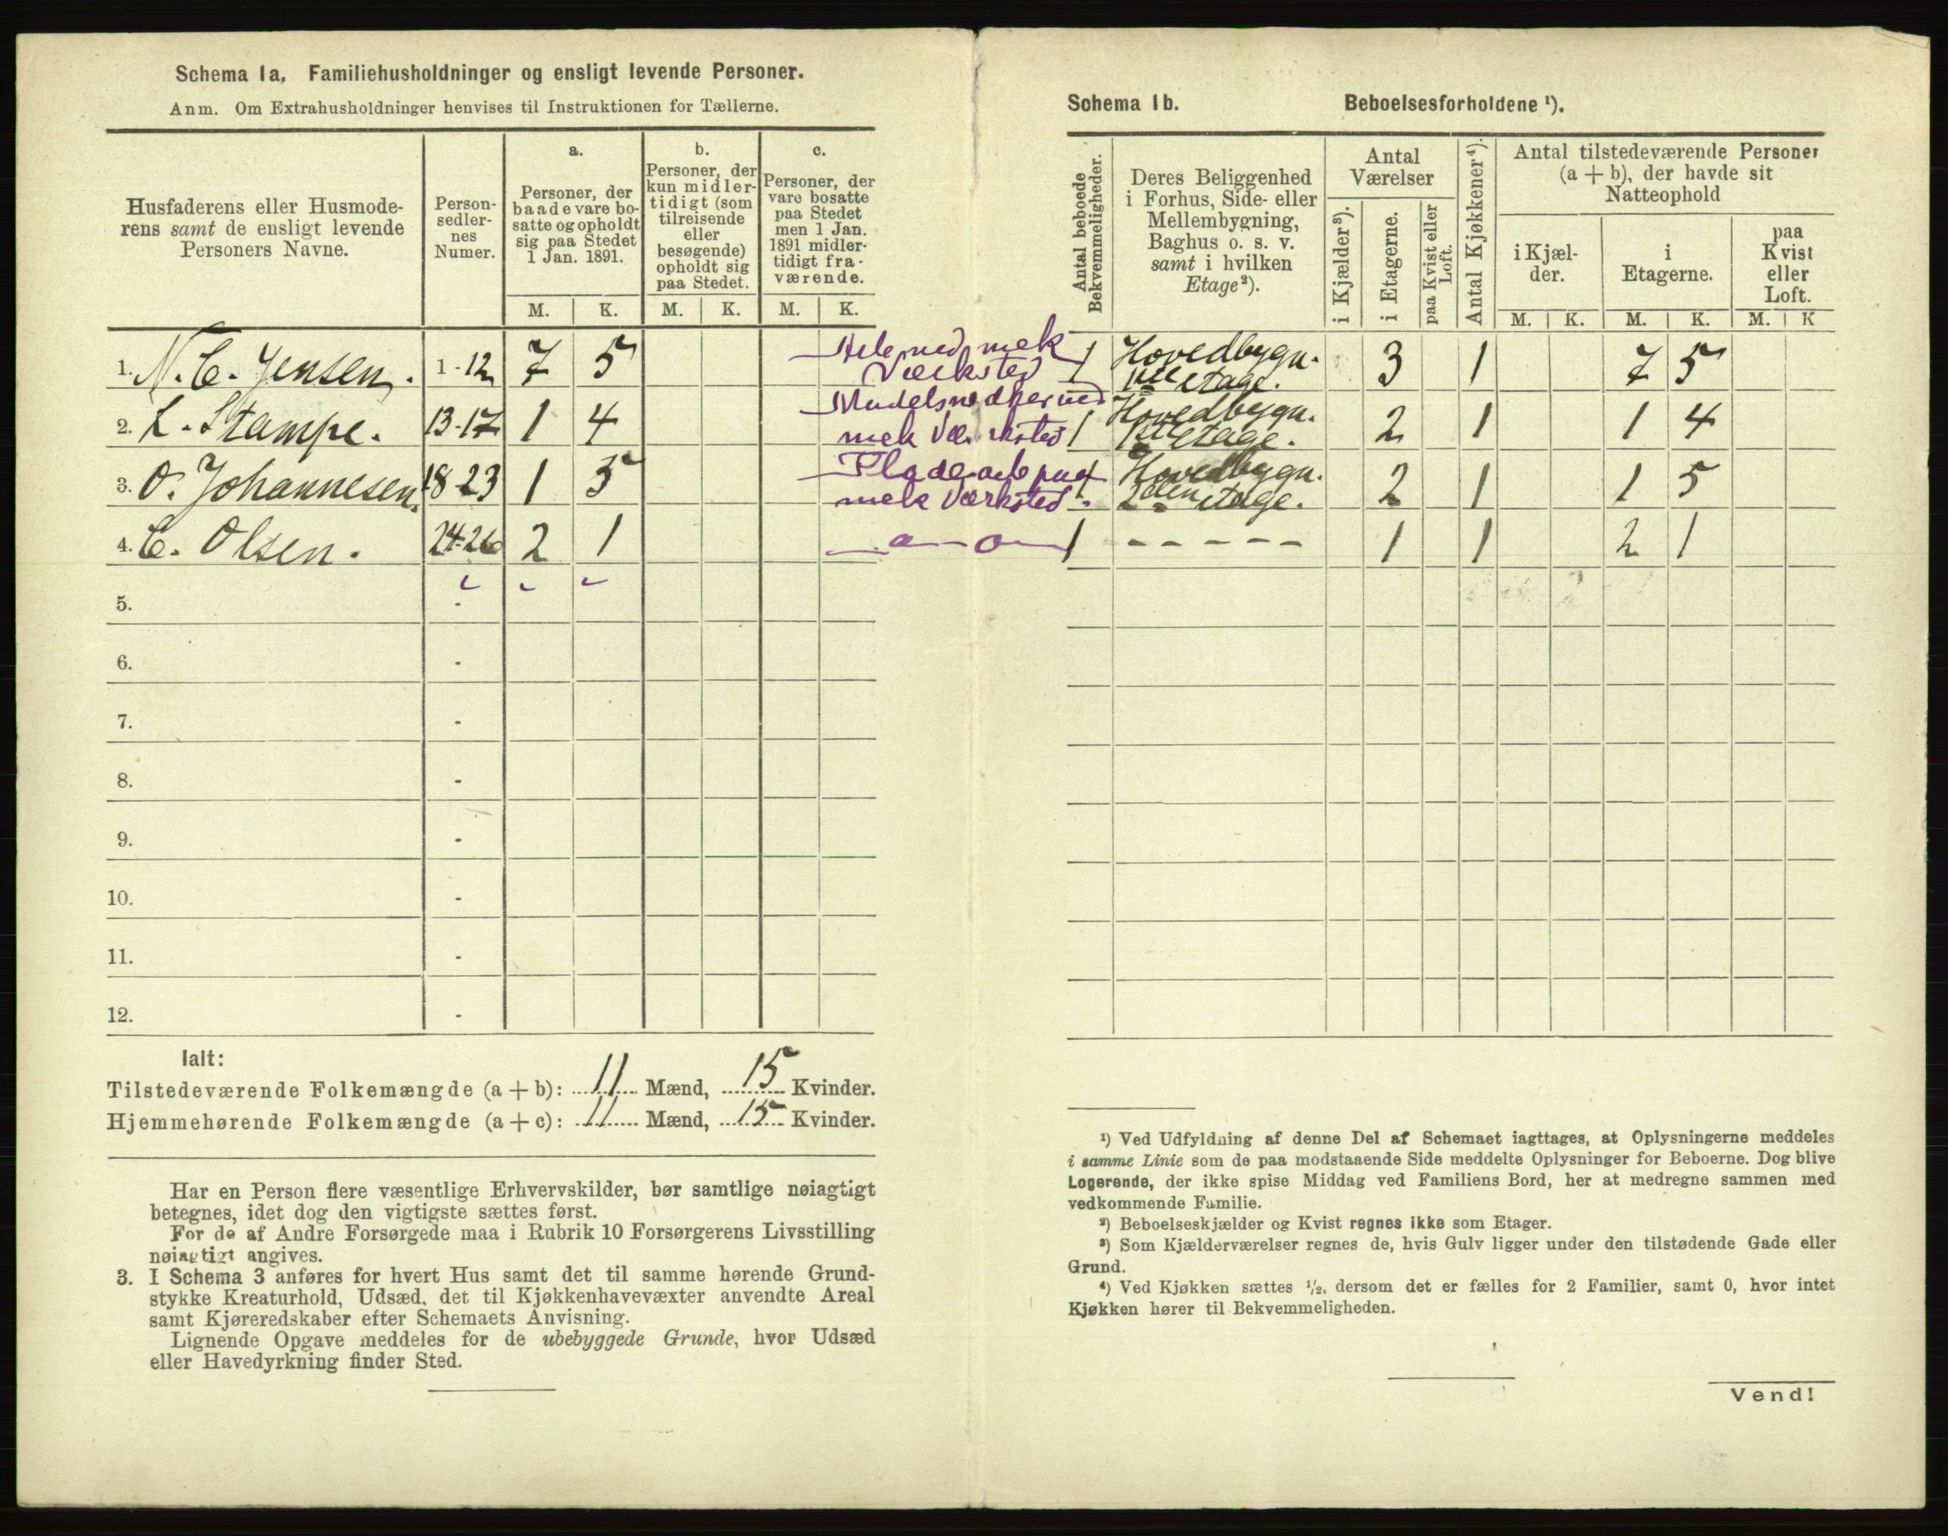 Schema 1a, Familiehusholdninger og ensligt levende Personer.
Anm. Om Extrahusholdninger henvises til Instruktionen for Tællerne.
Husfaderens eller Husmode-
rens samt de ensligt levende
Personers Navne.
Person-
sedler-
nes
Numer.
a.
Personer, der
baade vare bo-
satte og opholdt
sig paa Stedet
1 Jan. 1891.
b.
Personer, der
kun midler-
tidigt (som
tilreisende
eller
besøgende)
opholdt sig
paa Stedet.
c.
Personer, der
vare bosatte
paa Stedet
men 1 Jan.
1891 midler-
tidigt fra-
værende.
M. K. M. K. M. K.
1. N. C. Jensen. 1-12 7 5
2. L. Stampe. 13-17 1 4
mek Værksted
3. O. Johannesen. 18-23 1 5
mek Værksted.
4. C. Olsen. 24-26 2 1
5. -
6. -
7. -
8. -
9. -
10. -
11. -
12. -
Ialt:
Tilstedeværende Folkemængde (a + b): 11 Mænd, 15 Kvinder.
Hjemmehørende Folkemængde (a + c): 11 Mænd, 15 Kvinder.
Har en Person flere væsentlige Erhvervskilder, bør samtlige nøiagtigt
betegnes, idet dog den vigtigste sættes først.
For de af Andre Forsørgede maa i Rubrik 10 Forsørgerens Livsstilling
nøiagtigt angives.
3. I Schema 3 anføres for hvert Hus samt det til samme hørende Grund-
stykke Kreaturhold, Udsæd, det til Kjøkkenhavevæxter anvendte Areal
samt Kjøreredskaber efter Schemaets Anvisning.
Lignende Opgave meddeles for de ubebyggede Grunde, hvor Udsæd
eller Havedyrkning finder Sted.
Schema 1b. Beboelsesforholdene ¹).
Antal beboede
Bekvemmeligheder.
Deres Beliggenhed
i Forhus, Side- eller
Mellembygning,
Baghus o. s. v.
samt i hvilken
Etage²).
Antal
Værelser
i Kjælder³).
i Etagerne.
paa Kvist eller
Loft.
Antal Kjøkkener⁴).
Antal tilstedeværende Personer
(a + b), der havde sit
Natteophold
i Kjæl-
der.
i
Etagerne.
paa
Kvist
eller
Loft.
M. K. M. K. M. K
1 Hovedbygn. 3 1 7 5
1ste etage.
1 Hovedbygn. 2 1 1 4
1ste etage.
1 Hovedbygn. 2 1 1 5
2den etage.
1 - - - - - 1 1 2 1
¹) Ved Udfyldning af denne Del af Schemaet iagttages, at Oplysningerne meddeles
i samme Linie som de paa modstaaende Side meddelte Oplysninger for Beboerne. Dog blive
Logerende, der ikke spise Middag ved Familiens Bord, her at medregne sammen med
vedkommende Familie.
²) Beboelseskjælder og Kvist regnes ikke som Etager.
³) Som Kjælderværelser regnes de, hvis Gulv ligger under den tilstødende Gade eller
Grund.
⁴) Ved Kjøkken sættes ¹/₂, dersom det er fælles for 2 Familier, samt 0, hvor intet
Kjøkken hører til Bekvemmeligheden.
Vend!